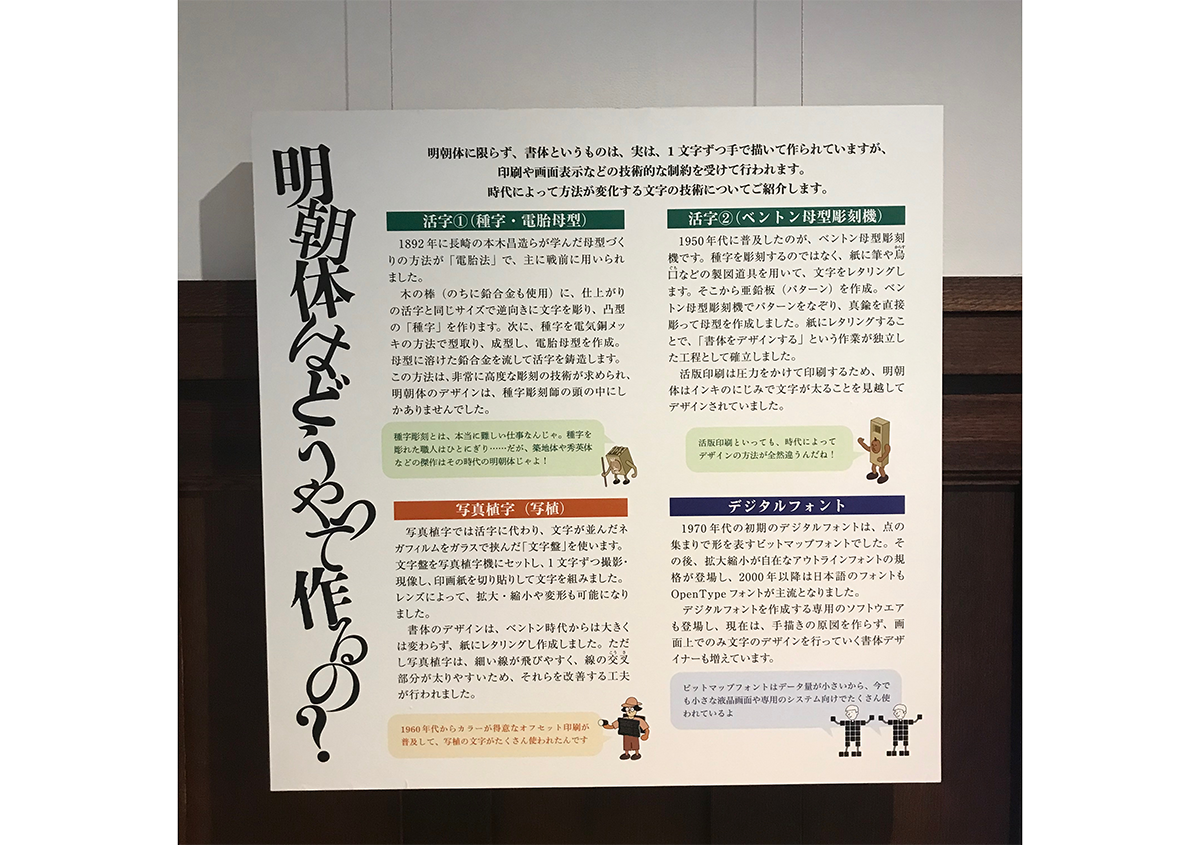 明朝体はどうやって作るの?
明朝体に限らず、書体というものは、実は、1文字ずつ手で描いて作られていますが、
印刷や画面表示などの技術的な制約を受けて行われます。
時代によって方法が変化する文字の技術についてご紹介します。
活字①(種字・電胎母型)
1892年に長崎の本木昌造らが学んだ母型づく
りの方法が「電胎法」で、主に戦前に用いられ
ました。
木の棒(のちに鉛合金も使用)に、仕上がり
の活字と同じサイズで逆向きに文字を彫り、凸型
の「種字」を作ります。次に、種字を電気銅メッ
キの方法で型取り、成型し、電胎母型を作成。
母型に溶けた鉛合金を流して活字を鋳造します。
この方法は、非常に高度な彫刻の技術が求められ、
明朝体のデザインは、種字彫刻師の頭の中にし
かありませんでした。
種字彫刻とは、本当に難しい仕事なんじゃ。種字を
彫れた職人はひとにぎり……だが、築地体や秀英体
などの傑作はその時代の明朝体じゃよ!
活字②(ベントン母型彫刻機)
1950年代に普及したのが、ベントン母型彫刻
機です。種字を彫刻するのではなく、紙に筆や烏
からす
口などの製図道具を用いて、文字をレタリングし
ぐち
ます。そこから亜鉛板(パターン)を作成。ベン
トン母型彫刻機でパターンをなぞり、真鍮を直接
彫って母型を作成しました。紙にレタリングするこ
とで、「書体をデザインする」という作業が独立し
た工程として確立しました。
活版印刷は圧力をかけて印刷するため、明朝
体はインキのにじみで文字が太ることを見越して
デザインされていました。
活版印刷といっても、時代によって
デザインの方法が全然違うんだね!
写真植字(写植)
写真植字では活字に代わり、文字が並んだネ
ガフィルムをガラスで挟んだ「文字盤」を使います。
文字盤を写真植字機にセットし、1文字ずつ撮影・
現像し、印画紙を切り貼りして文字を組みました。
レンズによって、拡大・縮小や変形も可能になり
ました。
書体のデザインは、ベントン時代からは大きく
は変わらず、紙にレタリングし作成しました。ただ
し写真植字は、細い線が飛びやすく、線の交叉
こうさ
部分が太りやすいため、それらを改善する工夫
が行われました。
1960年代からカラーが得意なオフセット印刷が
普及して、写植の文字がたくさん使われたんです
デジタルフォント
1970年代の初期のデジタルフォントは、点の
集まりで形を表すビットマップフォントでした。そ
の後、拡大縮小が自在なアウトラインフォントの規
格が登場し、2000年以降は日本語のフォントも
OpenTypeフォントが主流となりました。
デジタルフォントを作成する専用のソフトウエア
も登場し、現在は、手描きの原図を作らず、画
面上でのみ文字のデザインを行っていく書体デザ
イナーも増えています。
ビットマップフォントはデータ量が小さいから、今で
も小さな液晶画面や専用のシステム向けでたくさん使
われているよ